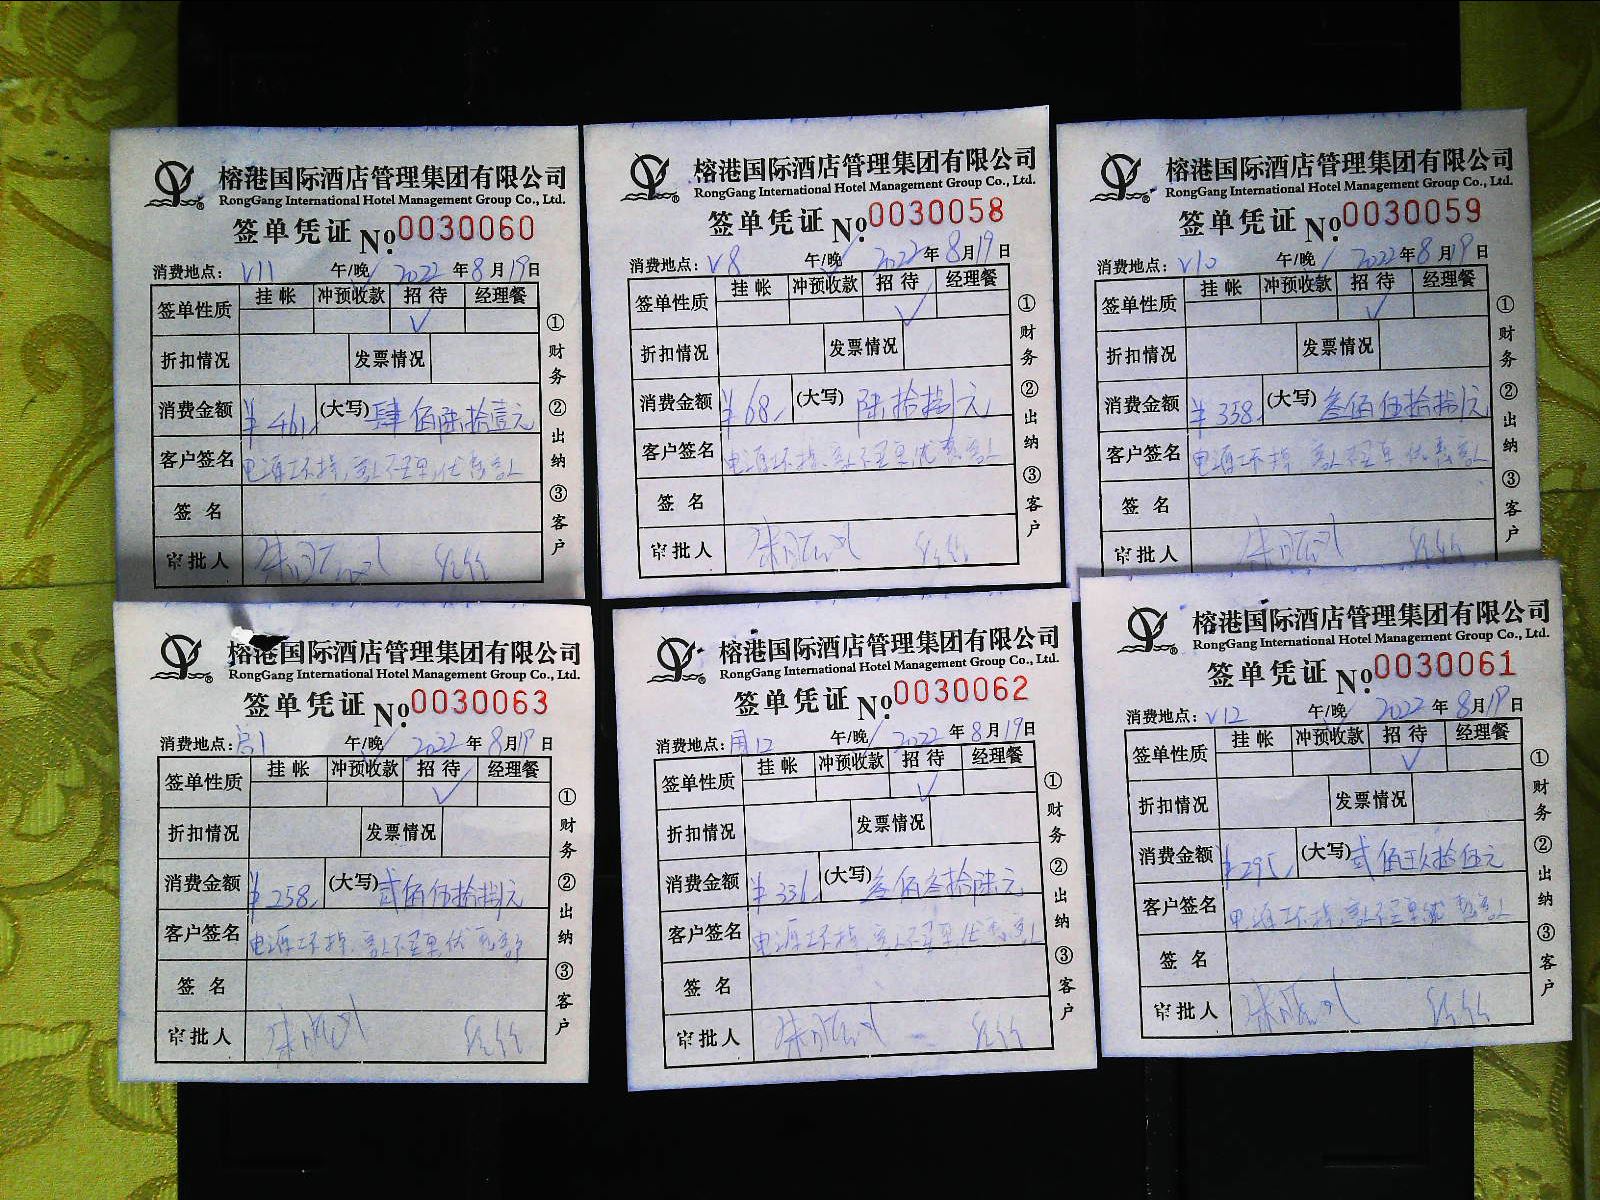 榕港国际酒店管理集团有限公司
RongGang International Hotel Management Group Co., Ltd.
签单凭证 No.0030060
消费地点：V11 午/晚 2022年8月19日
签单性质 挂帐 冲预收款 招待 经理餐
折扣情况 发票情况
消费金额 ¥461 (大写) 肆佰陆拾壹元
客户签名 电源坏掉,客人不买单,优惠客人
签名
审批人
①财务②出纳③客户
榕港国际酒店管理集团有限公司
RongGang International Hotel Management Group Co., Ltd.
签单凭证 No.0030058
消费地点：V8 午/晚 2022年8月19日
签单性质 挂帐 冲预收款 招待 经理餐
折扣情况 发票情况
消费金额 ¥68 (大写) 陆拾捌元
客户签名 电源坏掉,客人不买单,优惠客人
签名
审批人
①财务②出纳③客户
榕港国际酒店管理集团有限公司
RongGang International Hotel Management Group Co., Ltd.
签单凭证 No.0030059
消费地点：V10 午/晚 2022年8月19日
签单性质 挂帐 冲预收款 招待 经理餐
折扣情况 发票情况
消费金额 ¥358 (大写) 叁佰伍拾捌元
客户签名 电源坏掉,客人不买单,优惠客人
签名
审批人
①财务②出纳③客户
榕港国际酒店管理集团有限公司
RongGang International Hotel Management Group Co., Ltd.
签单凭证 No.0030063
消费地点： 午/晚 2022年8月19日
签单性质 挂帐 冲预收款 招待 经理餐
折扣情况 发票情况
消费金额 ¥258 (大写) 贰佰伍拾捌元
客户签名 电源坏掉,客人不买单,优惠客人
签名
审批人
①财务②出纳③客户
榕港国际酒店管理集团有限公司
RongGang International Hotel Management Group Co., Ltd.
签单凭证 No.0030062
消费地点：12 午/晚 2022年8月19日
签单性质 挂帐 冲预收款 招待 经理餐
折扣情况 发票情况
消费金额 ¥336 (大写) 叁佰叁拾陆元
客户签名 电源坏掉,客人不买单,优惠客人
签名
审批人
①财务②出纳③客户
榕港国际酒店管理集团有限公司
RongGang International Hotel Management Group Co., Ltd.
签单凭证 No.0030061
消费地点：V12 午/晚 2022年8月19日
签单性质 挂帐 冲预收款 招待 经理餐
折扣情况 发票情况
消费金额 ¥295 (大写) 贰佰玖拾伍元
客户签名 电源坏掉,客人不买单,优惠客人
签名
审批人
①财务②出纳③客户